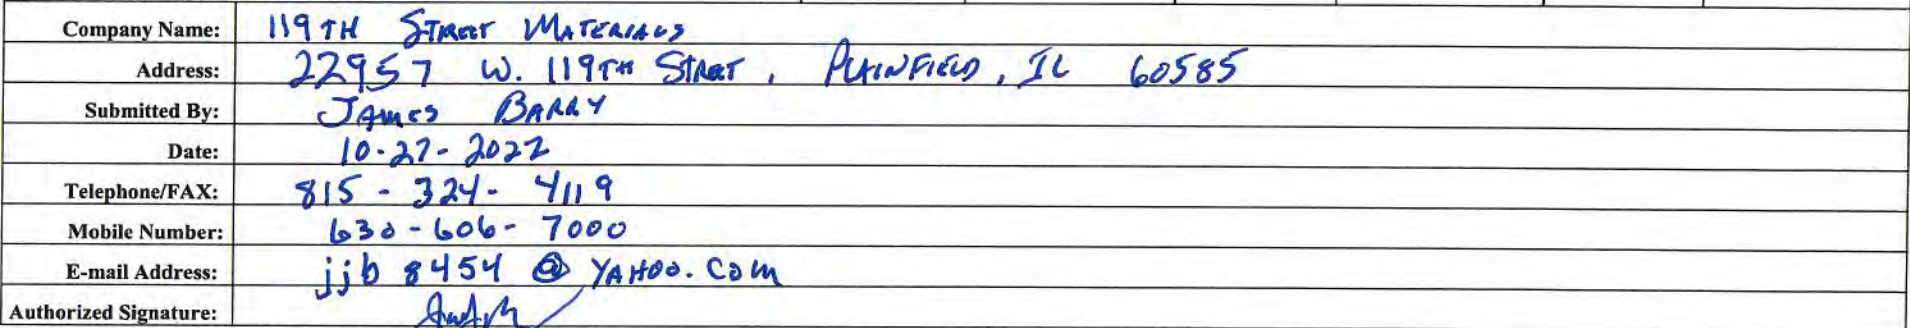 Company Name: 119TH STREET MATERIALS
Address: 22957 W. 119TH STREET, PLAINFIELD, IL 60585
Submitted By: JAMES BARRY
Date: 10-27-2022
Telephone/FAX: 815-324-4119
Mobile Number: 630-606-7000
E-mail Address: jjb8454@YAHOO.COM
Authorized Signature: